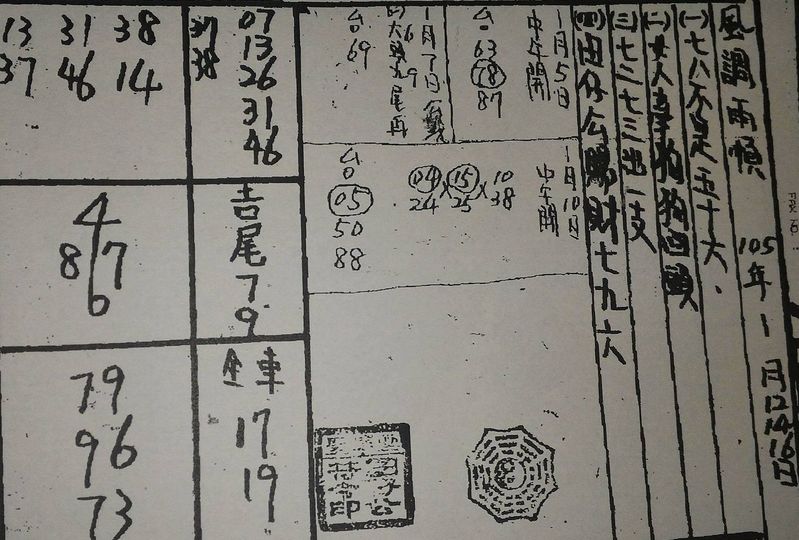 風調雨順 105年1月12 14 16日
(一)七八不是五十六.
(二)女人喜狗狗回頭
(三)七三七三出一支
(四)由仔公賜財七九六
1月5日
中午開
台
63
78
87
1月7日
台
69
1月10日
中午開
10
38
15
25
04
24
台
05
50
88
07
13
26
31
46
37
38
吉尾
7
9
全車
17
19
13 31 38
37 46 14
4
8 7
6
79
96
73